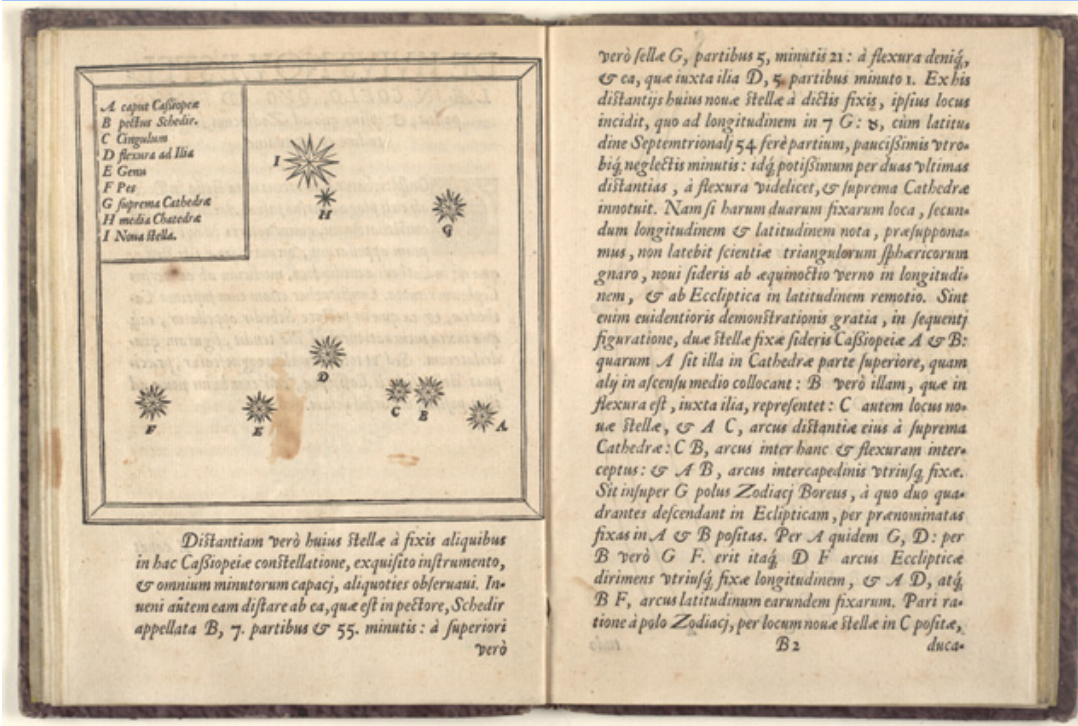 A caput Cassiopeæ
B pectus Schedir.
C Cingulum
D flexura ad Ilia
E Genu
F Pes
G suprema Cathedræ
H media Chatedræ
I Noua stella.
I
H
G
D
C
B
A
E
F
Distantiam verò huius stellæ à fixis aliquibus
in hac Cassiopeiæ constellatione, exquisito instrumento,
& omnium minutorum capacj, aliquoties obseruaui. In-
ueni aűtem eam distare ab ea, quæ est in pectore, Schedir
appellata B, 7. partibus & 55. minutis: à superiori
verò
verò sellæ G, partibus 5, minutis 21: à flexura deniq́,
& ea, quæ iuxta ilia D, 5. partibus minuto 1. Ex his
distantijs huius nouæ stellæ à dictis fixis, ipsius locus
incidit, quo ad longitudinem in 7 G: ♉, cùm latitu-
dine Septemtrionalj 54 ferè partium, paucissimis vtro-
biq́, neglectis minutis: idq́, potissimum per duas vltimas
distantias, à flexura videlicet, & suprema Cathedræ
innotuit. Nam si harum duarum fixarum loca, secun-
dum longitudinem & latitudinem nota, præsuppona-
mus, non latebit scientiæ triangulorum sphæricorum
gnaro, noui sideris ab æquinoctio verno in longitudi-
nem, & ab Eccliptica in latitudinem remotio. Sint
enim euidentioris demonstrationis gratia, in sequentj
figuratione, duæ stellæ fixæ sideris Cassiopeiæ A & B:
quarum A sit illa in Cathedræ parte superiore, quam
alij in ascensu medio collocant: B verò illam, quæ in
flexura est, iuxta ilia, repræsentet: C autem locus no-
uæ stellæ, & A C, arcus distantiæ eius à suprema
Cathedræ: C B, arcus inter hanc & flexuram inter-
ceptus: & A B, arcus intercapedinis vtriusq́, fixæ.
Sit insuper G polus Zodiacj Boreus, à quo duo qua-
drantes descendant in Eclipticam, per prænominatas
fixas in A & B positas. Per A quidem G, D: per
B verò G F. erit itaq́, D F arcus Eccliptica
dirimens vtriusq́, fixæ longitudinem, & A D, atq́,
B F, arcus latitudinum earundem fixarum. Pari ra-
tione à polo Zodiacj, per locum nouæ stellæ in C positæ,
B 2
duca-